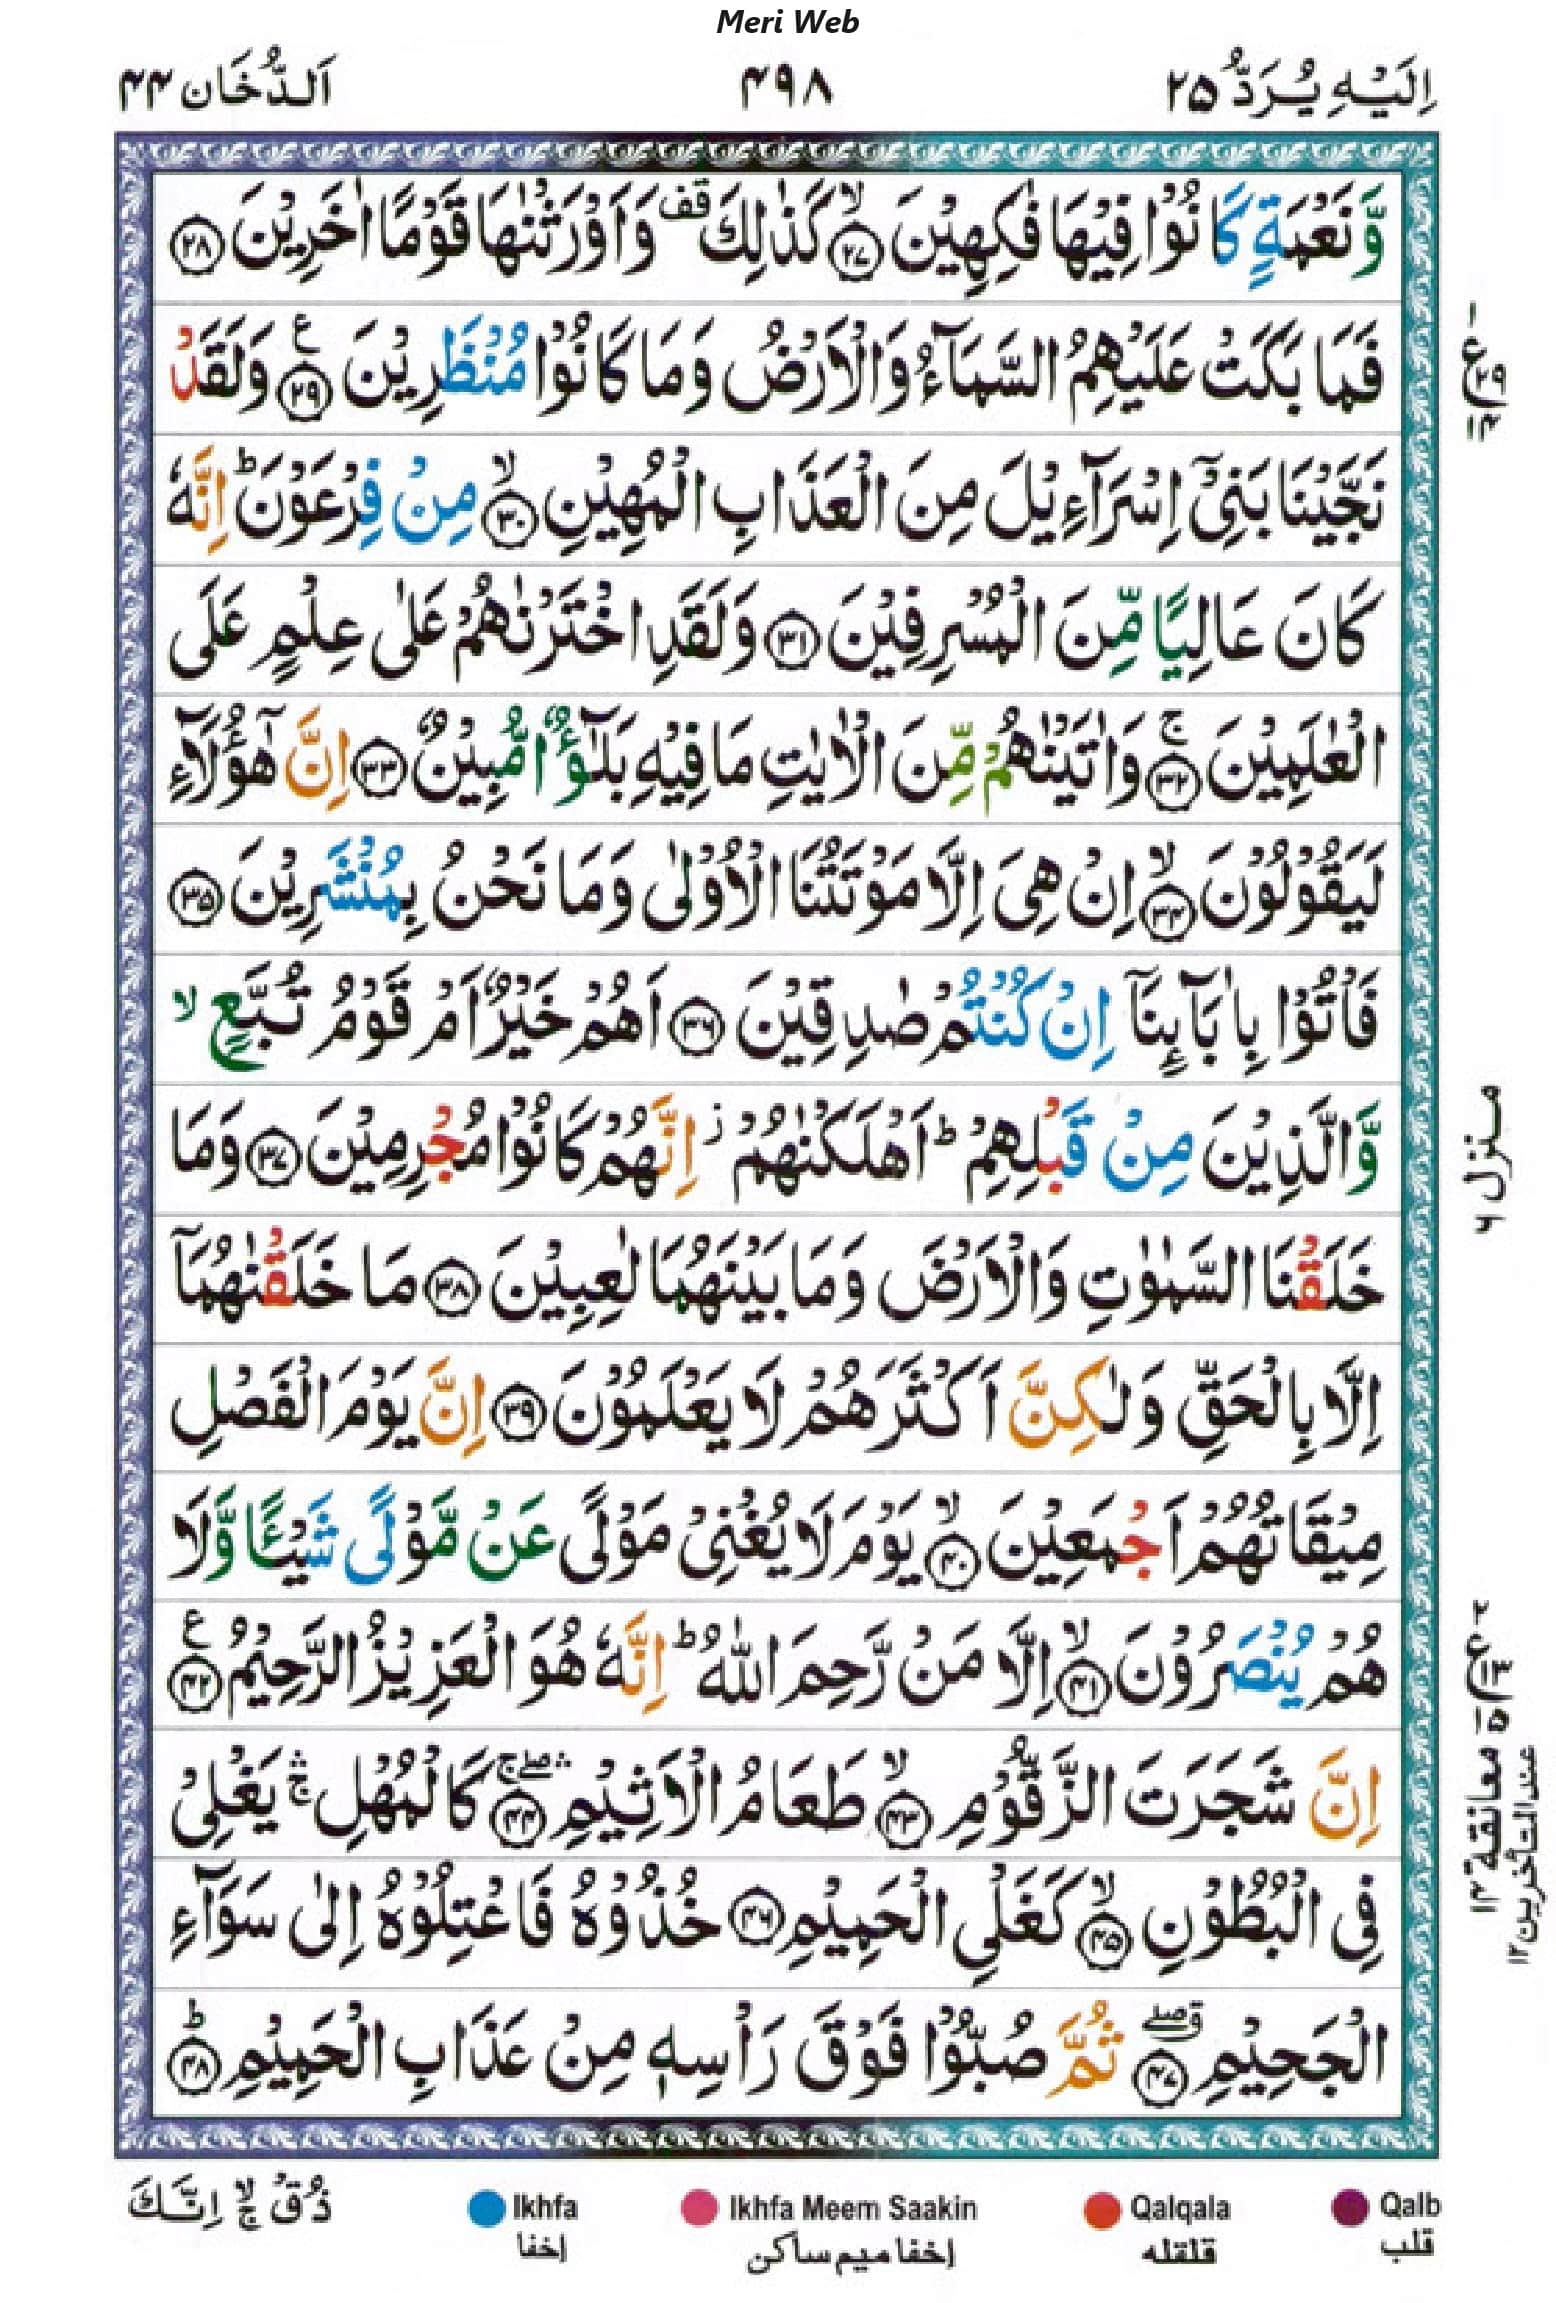 Meri Web
اِلَيْهِ يُرَدُّ ٢٥
٤٩٨
اَلدُّخَان ٤٤
وَّنَعْمَةٍ كَانُوْا فِيْهَا فٰكِهِيْنَ ۙ‏﴿۲۷﴾ كَذٰلِكَ ۫ وَاَوْرَثْنٰهَا قَوْمًا اٰخَرِيْنَ ﴿۲۸﴾
فَمَا بَكَتْ عَلَيْهِمُ السَّمَآءُ وَالْاَرْضُ وَمَا كَانُوْا مُنْظَرِيْنَ ﴿۲۹﴾ ع وَلَقَدْ
نَجَّيْنَا بَنِىْۤ اِسْرَآءِيْلَ مِنَ الْعَذَابِ الْمُهِيْنِ ۙ‏﴿۳۰﴾ مِنْ فِرْعَوْنَ ؕ اِنَّهٗ
كَانَ عَالِيًا مِّنَ الْمُسْرِفِيْنَ ﴿۳۱﴾ وَلَقَدِ اخْتَرْنٰهُمْ عَلٰى عِلْمٍ عَلَى
الْعٰلَمِيْنَ ۚ‏﴿۳۲﴾ وَاٰتَيْنٰهُمْ مِّنَ الْاٰيٰتِ مَا فِيْهِ بَلٰٓؤٌا مُّبِيْنٌ ﴿۳۳﴾ اِنَّ هٰٓؤُلَآءِ
لَيَقُوْلُوْنَ ۙ‏﴿۳۴﴾ اِنْ هِىَ اِلَّا مَوْتَتُنَا الْاُوْلٰى وَمَا نَحْنُ بِمُنْشَرِيْنَ ﴿۳۵﴾
فَاْتُوْا بِاٰبَآئِنَاۤ اِنْ كُنْتُمْ صٰدِقِيْنَ ﴿۳۶﴾ اَهُمْ خَيْرٌ اَمْ قَوْمُ تُبَّعٍ ۙ
وَّالَّذِيْنَ مِنْ قَبْلِهِمْ ؕ اَهْلَكْنٰهُمْ ز اِنَّهُمْ كَانُوْا مُجْرِمِيْنَ ﴿۳۷﴾ وَمَا
خَلَقْنَا السَّمٰوٰتِ وَالْاَرْضَ وَمَا بَيْنَهُمَا لٰعِبِيْنَ ﴿۳۸﴾ مَا خَلَقْنٰهُمَاۤ
اِلَّا بِالْحَقِّ وَلٰكِنَّ اَكْثَرَهُمْ لَا يَعْلَمُوْنَ ﴿۳۹﴾ اِنَّ يَوْمَ الْفَصْلِ
مِيْقَاتُهُمْ اَجْمَعِيْنَ ۙ‏﴿۴۰﴾ يَوْمَ لَا يُغْنِىْ مَوْلًى عَنْ مَّوْلًى شَيْـًٔا وَّلَا
هُمْ يُنْصَرُوْنَ ۙ‏﴿۴۱﴾ اِلَّا مَنْ رَّحِمَ اللّٰهُ ؕ اِنَّهٗ هُوَ الْعَزِيْزُ الرَّحِيْمُ ﴿۴۲﴾ ع
اِنَّ شَجَرَتَ الزَّقُّوْمِ ۙ‏﴿۴۳﴾ طَعَامُ الْاَثِيْمِ ۛۖۚ‏﴿۴۴﴾ كَالْمُهْلِ ۛۚ يَغْلِىْ
فِى الْبُطُوْنِ ۙ‏﴿۴۵﴾ كَغَلْىِ الْحَمِيْمِ ﴿۴۶﴾ خُذُوْهُ فَاعْتِلُوْهُ اِلٰى سَوَآءِ
الْجَحِيْمِ ۖ‏﴿۴۷﴾ ثُمَّ صُبُّوْا فَوْقَ رَاْسِهٖ مِنْ عَذَابِ الْحَمِيْمِ ؕ‏﴿۴۸﴾
١
ع ٢٩
١٤
منزل ٦
٢
ع ١٣
١٥
معانقة ١٢
عند المتأخرين ١٢
ذُقْ ۙۚ اِنَّكَ
Ikhfa
اخفا
Ikhfa Meem Saakin
اخفا میم ساکن
Qalqala
قلقله
Qalb
قلب